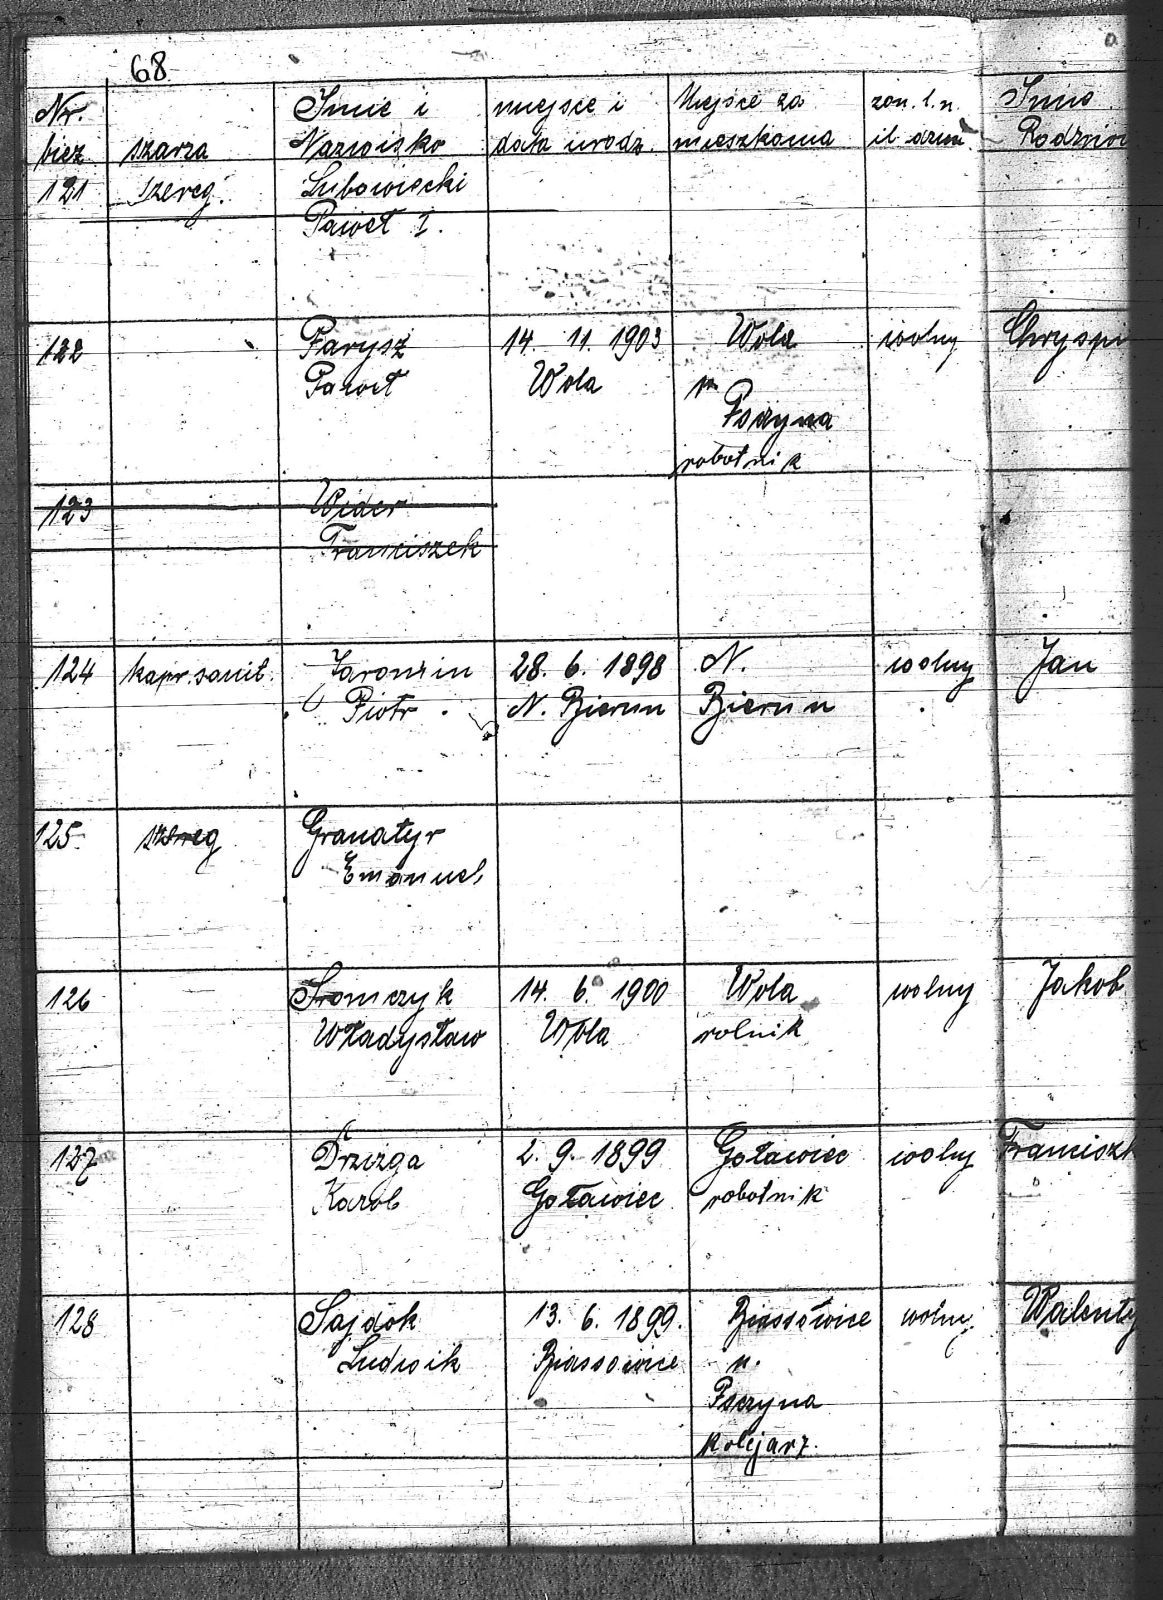 68
Nr. bież szarża Imię i Nazwisko miejsce i data urodz. Miejsce za mieszkania żon. l. n. il dzieci Imio
121 szereg. Lubowiecki
Paweł I.
122 Parysz 14. 11. 1903 Wola wolny Chryspi
Paweł Wola
Pszyna
robotnik
123 Wider
Franciszek
124 kapr. sanit. Jaromin 28. 6. 1898 N. wolny Jan
Piotr N. Bierun Bierun
125 szereg Granatyr
Emanuel
126 Sromczyk 14. 6. 1900 Wola wolny Jakob
Władysław Wola rolnik
127 Drzizga 2. 9. 1899 Goławiec wolny Franciszk
Karol Goławiec robotnik
128 Sajdok 13. 6. 1899. Biassowice wolny Walenty
Ludwik Biassowice n.
Psczyna
kolejarz.